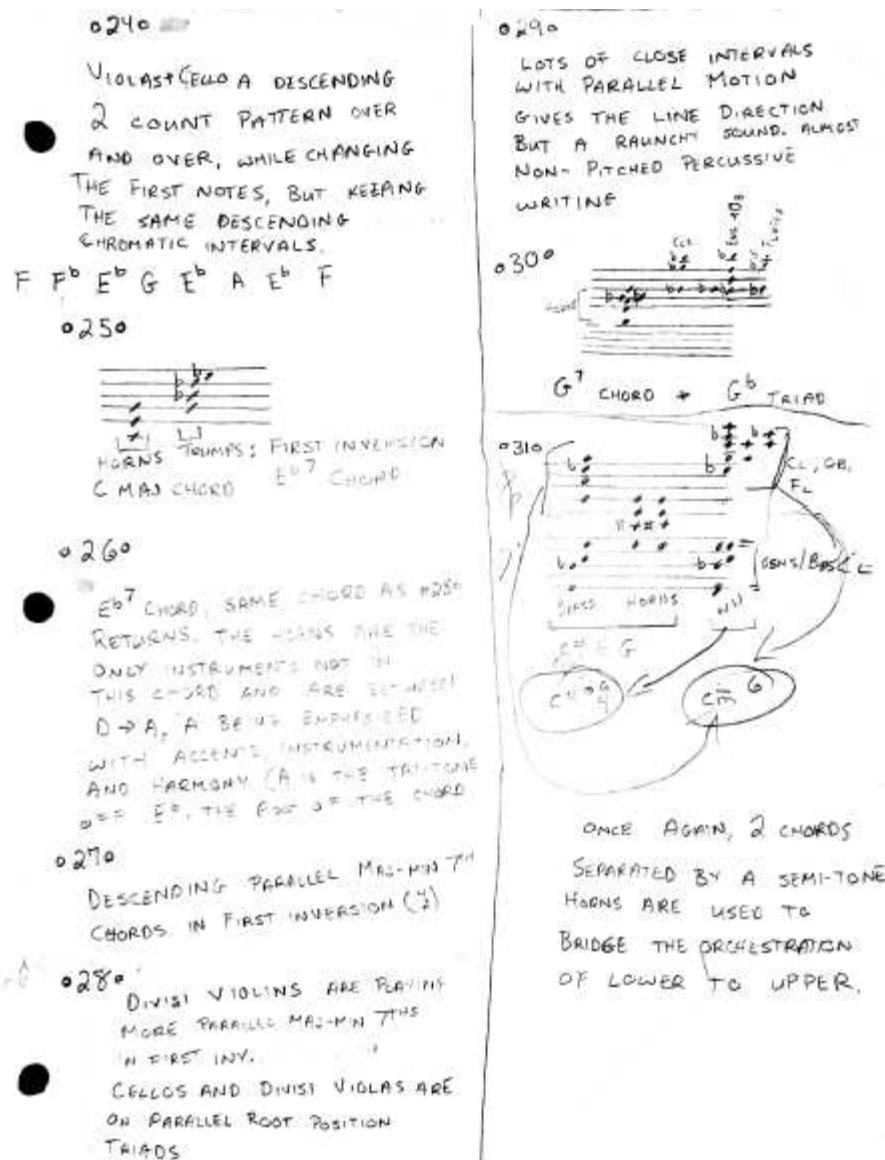 o24o
VIOLAS+CELLO A DESCENDING
2 COUNT PATTERN OVER
AND OVER, WHILE CHANGING
THE FIRST NOTES, BUT KEEPING
THE SAME DESCENDING
CHROMATIC INTERVALS.
F F♭ E♭ G E♭ A E♭ F
o25o
HORNS TRUMPS: FIRST INVERSION
C MAJ CHORD E♭7 CHORD
o26o
E♭7 CHORD, SAME CHORD AS o25o
RETURNS. THE HORNS ARE THE
ONLY INSTRUMENTS NOT IN
THIS CHORD AND ARE BETWEEN
D → A, A BEING EMPHASIZED
WITH ACCENTS, INSTRUMENTATION,
AND HARMONY (A IS THE TRITONE
THE CHORD
o27o
DESCENDING PARALLEL MAJ-MIN 7TH
CHORDS IN FIRST INVERSION
o28o
DIVISI VIOLINS ARE PLAYING
MORE PARALLEL MAJ-MIN 7THS
IN FIRST INV.
CELLOS AND DIVISI VIOLAS ARE
ON PARALLEL ROOT POSITION
TRIADS
o29o
LOTS OF CLOSE INTERVALS
WITH PARALLEL MOTION
GIVES THE LINE DIRECTION
BUT A RAUNCHY SOUND. ALMOST
NON-PITCHED PERCUSSIVE
WRITING
o30o
G7 CHORD + G♭ TRIAD
o31o
CL, OB,
FL
HORNS
ONCE AGAIN, 2 CHORDS
SEPARATED BY A SEMI-TONE
HORNS ARE USED TO
BRIDGE THE ORCHESTRATION
OF LOWER TO UPPER.